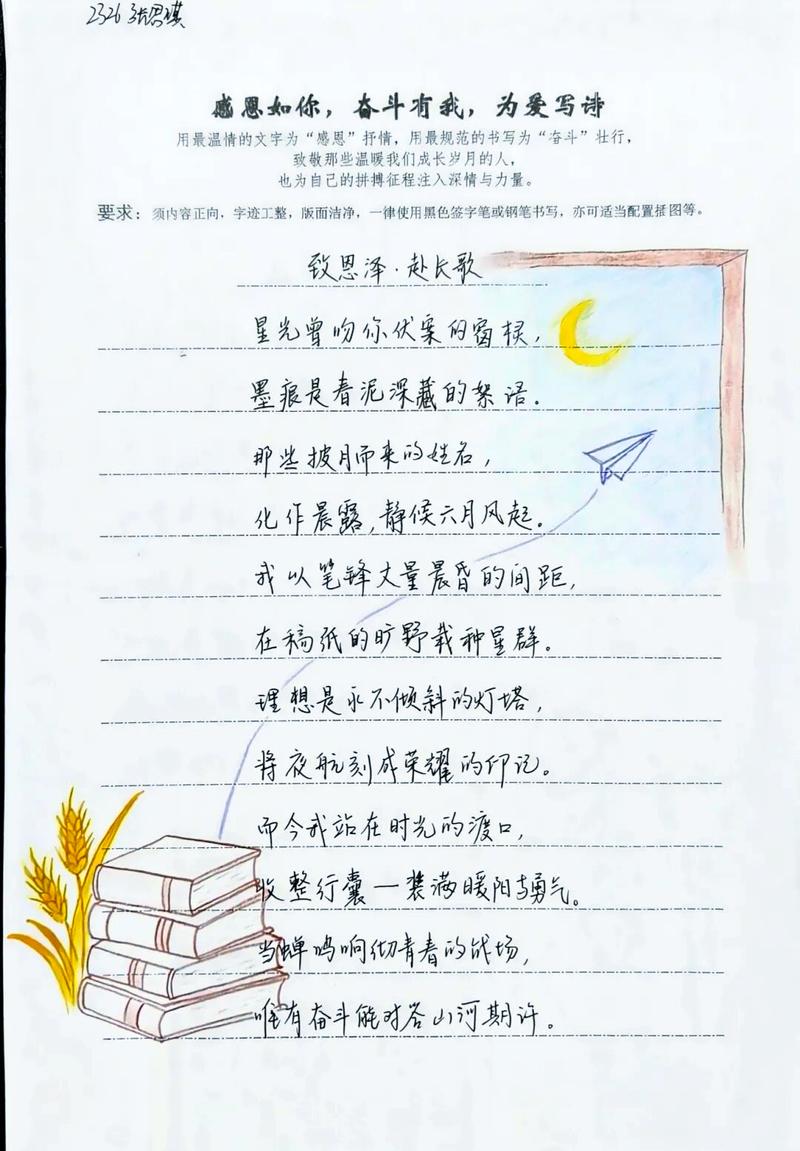 2326 张思琪
感恩如你，奋斗有我，为爱写诗
用最温情的文字为“感恩”抒情，用最规范的书写为“奋斗”壮行，
致敬那些温暖我们成长岁月的人，
也为自己的拼搏征程注入深情与力量。
要求：须内容正向，字迹工整，版面洁净，一律使用黑色签字笔或钢笔书写，亦可适当配置插图等。
致恩泽·赴长歌
星光曾吻你伏案的窗棂，
墨痕是春泥深藏的絮语。
那些披月而来的姓名，
化作晨露，静候六月风起。
我以笔锋丈量晨昏的间距，
在稿纸的旷野栽种星群。
理想是永不倾斜的灯塔，
将夜航刻成荣耀的印记。
而今我站在时光的渡口，
收整行囊一装满暖阳与勇气。
当蝉鸣响彻青春的战场，
唯有奋斗能对答山河期许。